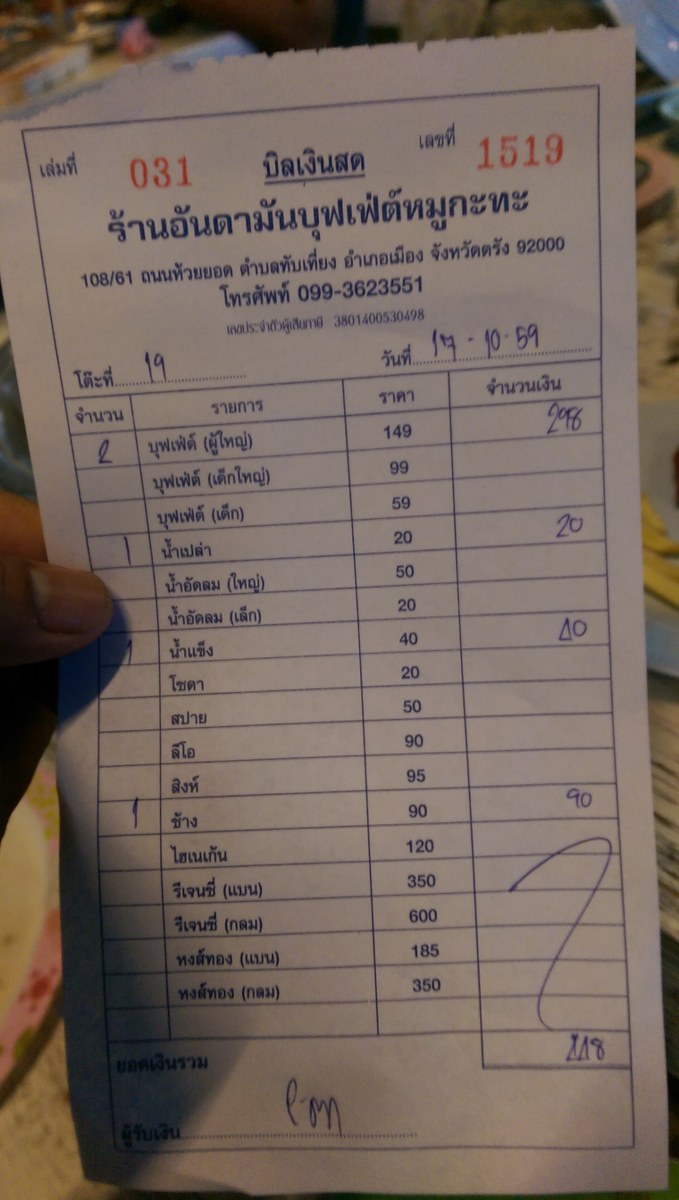 เล่มที่ 031 บิลเงินสด เลขที่ 1519
ร้านอันดามันบุฟเฟ่ต์หมูกะทะ
108/61 ถนนห้วยยอด ตำบลทับเที่ยง อำเภอเมือง จังหวัดตรัง 92000
โทรศัพท์ 099-3623551
เลขประจำตัวผู้เสียภาษี 3801400530498
โต๊ะที่ 19 วันที่ 17-10-59
จำนวน รายการ ราคา จำนวนเงิน
2 บุฟเฟ่ต์ (ผู้ใหญ่) 149 298
บุฟเฟ่ต์ (เด็กใหญ่) 99
บุฟเฟ่ต์ (เด็ก) 59
1 น้ำเปล่า 20 20
น้ำอัดลม (ใหญ่) 50
น้ำอัดลม (เล็ก) 20
1 น้ำแข็ง 40 40
โซดา 20
สปาย 50
ลีโอ 90
สิงห์ 95
1 ช้าง 90 90
ไฮเนเก้น 120
รีเจนซี่ (แบน) 350
รีเจนซี่ (กลม) 600
หงส์ทอง (แบน) 185
หงส์ทอง (กลม) 350
ยอดเงินรวม 448
ผู้รับเงิน